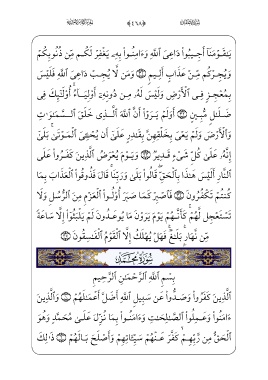 (٤٦٨)
يَٰقَوْمَنَآ أَجِيبُوا۟ دَاعِىَ ٱللَّهِ وَءَامِنُوا۟ بِهِۦ يَغْفِرْ لَكُم مِّن ذُنُوبِكُمْ
وَيُجِرْكُم مِّنْ عَذَابٍ أَلِيمٍ ﴿٣١﴾ وَمَن لَّا يُجِبْ دَاعِىَ ٱللَّهِ فَلَيْسَ
بِمُعْجِزٍ فِى ٱلْأَرْضِ وَلَيْسَ لَهُۥ مِن دُونِهِۦٓ أَوْلِيَآءُ أُو۟لَٰٓئِكَ فِى
ضَلَٰلٍ مُّبِينٍ ﴿٣٢﴾ أَوَلَمْ يَرَوْا۟ أَنَّ ٱللَّهَ ٱلَّذِى خَلَقَ ٱلسَّمَٰوَٰتِ
وَٱلْأَرْضَ وَلَمْ يَعْىَ بِخَلْقِهِنَّ بِقَٰدِرٍ عَلَىٰٓ أَن يُحْۦِىَ ٱلْمَوْتَىٰ بَلَىٰٓ
إِنَّهُۥ عَلَىٰ كُلِّ شَىْءٍ قَدِيرٌ ﴿٣٣﴾ وَيَوْمَ يُعْرَضُ ٱلَّذِينَ كَفَرُوا۟ عَلَى
ٱلنَّارِ أَلَيْسَ هَٰذَا بِٱلْحَقِّ قَالُوا۟ بَلَىٰ وَرَبِّنَا قَالَ فَذُوقُوا۟ ٱلْعَذَابَ بِمَا
كُنتُمْ تَكْفُرُونَ ﴿٣٤﴾ فَٱصْبِرْ كَمَا صَبَرَ أُو۟لُوا۟ ٱلْعَزْمِ مِنَ ٱلرُّسُلِ وَلَا
تَسْتَعْجِل لَّهُمْ كَأَنَّهُمْ يَوْمَ يَرَوْنَ مَا يُوعَدُونَ لَمْ يَلْبَثُوٓا۟ إِلَّا سَاعَةً
مِّن نَّهَارٍ بَلَٰغٌ فَهَلْ يُهْلَكُ إِلَّا ٱلْقَوْمُ ٱلْفَٰسِقُونَ ﴿٣٥﴾
سُورَةُ مُحَمَّدٍ
بِسْمِ ٱللَّهِ ٱلرَّحْمَٰنِ ٱلرَّحِيمِ
ٱلَّذِينَ كَفَرُوا۟ وَصَدُّوا۟ عَن سَبِيلِ ٱللَّهِ أَضَلَّ أَعْمَٰلَهُمْ ﴿١﴾ وَٱلَّذِينَ
ءَامَنُوا۟ وَعَمِلُوا۟ ٱلصَّٰلِحَٰتِ وَءَامَنُوا۟ بِمَا نُزِّلَ عَلَىٰ مُحَمَّدٍ وَهُوَ
ٱلْحَقُّ مِن رَّبِّهِمْ كَفَّرَ عَنْهُمْ سَيِّـَٔاتِهِمْ وَأَصْلَحَ بَالَهُمْ ﴿٢﴾ ذَٰلِكَ